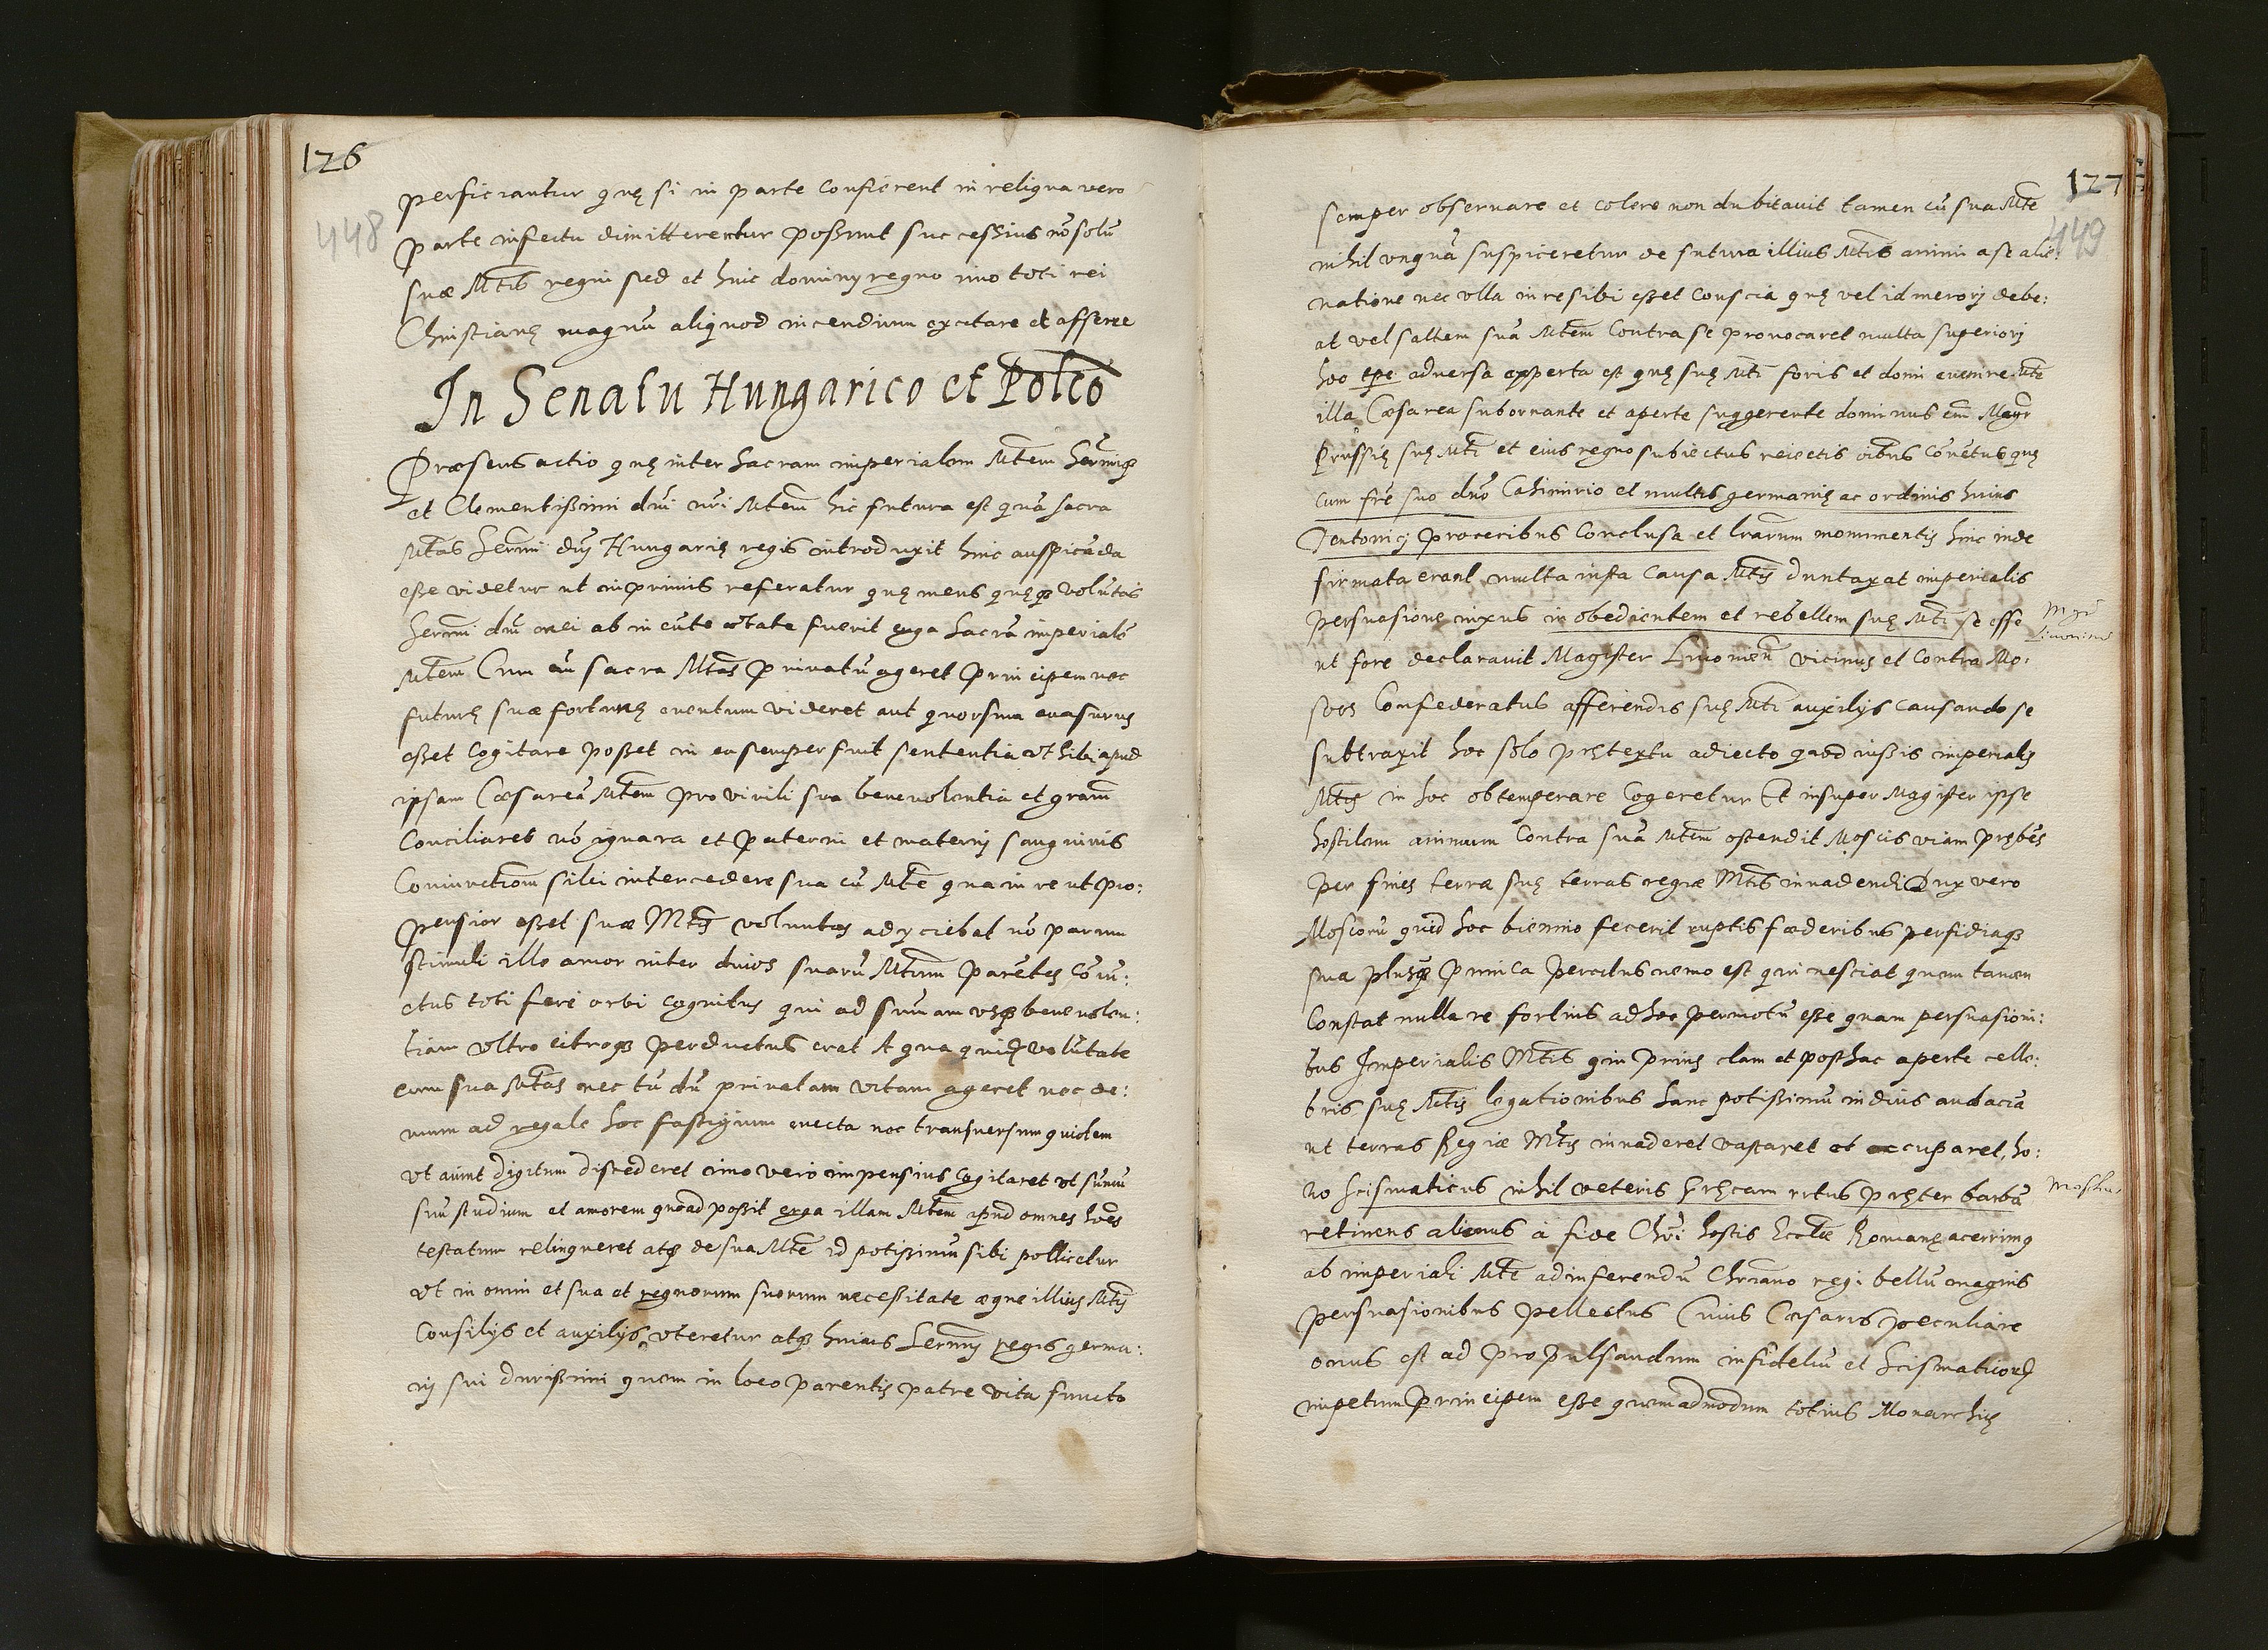 126
448
perficiantur quę si in parte conficerent in reliqua vero
parte infectu dimitterentur possunt successius nõ solũ
suæ Mtis regni sed et huic dominy regno imo toti rei
Christianę magnũ aliquod incendium excitare et afferre
In Senatu Hungarico et Polco
Præsens actio quę inter sacram imperialem Mtem Sermiq3
et Clementissimi dni nri Mtem hic futura est quã sacra
Mtas Sermi dnj Hungarię regis introduxit hinc auspicãda
esse videtur ut inprimis referatur quę mens quęq3 volũtas
Sermi dni mei ab ineũte ætate fuerit erga sacrã imperialẽ
Mtem Cum eñ sacra Mtas privatũ ageret principem nec
futurę suæ fortunę eventum videret aut quorsum evasurus
esset cogitare posset in ea semper fuit sententia ut sibi apud
ipsam Cæsareã Mtem pro virili sua benevolentia et gram
conciliaret nõ ignara et paterni et materni sanguinis
coniunctiom sibi intercedere sua cũ Mte qua in re ut pro:
pensior esset suæ Mtis voluntas adyciebat nõ parum
stimuli ille amor inter divos suarũ Mtum parẽtes cõiũ:
ctus toti ferè orbi cognitus qui ad sum̃am usq3 benevolen:
tiam ultro citroq3 perductus erat A qua quidẽ volũtate
cum sua Mtas nec tũ dũ privatam vitam ageret nec de:
mum ad regale hoc fastigium evecta nec transversum quidem
ut aiunt digitum discederet imo vero impensius cogitaret ut sum̃ũ
suũ studium et amorem quoad possit erga illam Mtem apud omnes hoẽs
testatum relinqueret atq3 de sua Mte id potissimũ sibi pollicetur
ut in omni et sua et regnorum suorum necessitate æque illius Mtis
consilijs et auxilijs uteretur atq3 huius Sermi regis germa:
ni sui charissimi quem in loco parentis patre vita functo
127
449
semper observare et colere non dubitavit tamen cũ sua Mte
nihil unquã suspiceretur de futura illius Mtis animi a se alie:
natione nec ulla in re sibi esset conscia quę vel id mereri debe:
at vel saltem suã Mtem contra se provocaret multa superiorj
hoc tpe adversa experta est quę suę Mti foris et domi evenire Mte
illa Cæsarea subornante et aperte suggerente dominus em̃ Magr
Prussię suę Mti et eius regno subiectus reiectis oĩbus cõvẽtus quę
cum frẽ suo dnõ Casimirio et multis germanię ac ordinis huius
Teutonicj proceribus conclusa et lrarum monumentis hinc inde
firmata erant multa iusta causa Mtis duntaxat imperialis
persuasione nixus inobedientem et rebellem suę Mti se esse
Mgr
Livonien
ut fore declaravit Magister Livonieñ vicinus et contra Mo:
scos confederatus afferendis suę Mti auxilijs causando se
subtraxit hoc solo prętextu adiecto quod iussis imperialis
Mtis in hoc obtemperare cogeretur Et insuper Magister ipse
hostilem animum contra suã Mtem ostendit Moscis viam prębẽs
per fines terræ suę terras regiæ Mtis invadendi Dux vero
Moscorũ quid hoc biennio fecerit ruptis fæderibus perfidiaq3
sua plusq3 Punica percitus nemo est qui nesciat quem tamen
constat nulla re fortius ad hoc permotũ esse quam persuasioni:
bus Imperialis Mtis qui prius clam et posthac aperte cele:
bris suę Mtis legationibus hanc potissimũ induit audaciã
ut terras Regiæ Mtis invaderet vastaret et occuparet, ho:
mo scismaticus nihil veteris Gręcam ritus pręter barbã
Moschus
retinens alienus à fide Chri hostis Eccliæ Romanę acerrimq
ab imperiali Mte ad inferendũ Chriano regi bellũ magnis
persuasionibus pellectus Cuius Cæsaris peculiare
onus est ad propulsandum infideliũ et scismaticorũ
impetum principem esse quemadmodum totius Monarchię